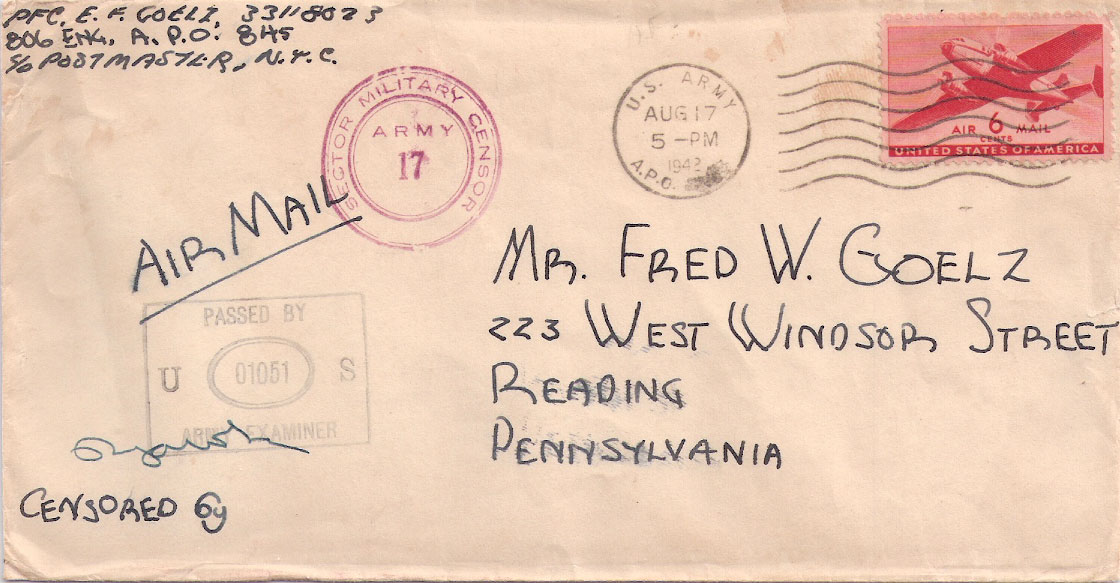 PFC. E. F. GOELZ, 33118023
806 ENG. A.P.O. 845
c/o POSTMASTER, N.Y.C.
SECTOR MILITARY CENSOR
ARMY
17
U.S. ARMY
AUG 17
5 -PM
1942
A.P.O.
AIR 6 MAIL
CENTS
UNITED STATES OF AMERICA
AIR MAIL
MR. FRED W. GOELZ
223 WEST WINDSOR STREET
READING
PENNSYLVANIA
PASSED BY
U 01051 S
ARMY EXAMINER
CENSORED by